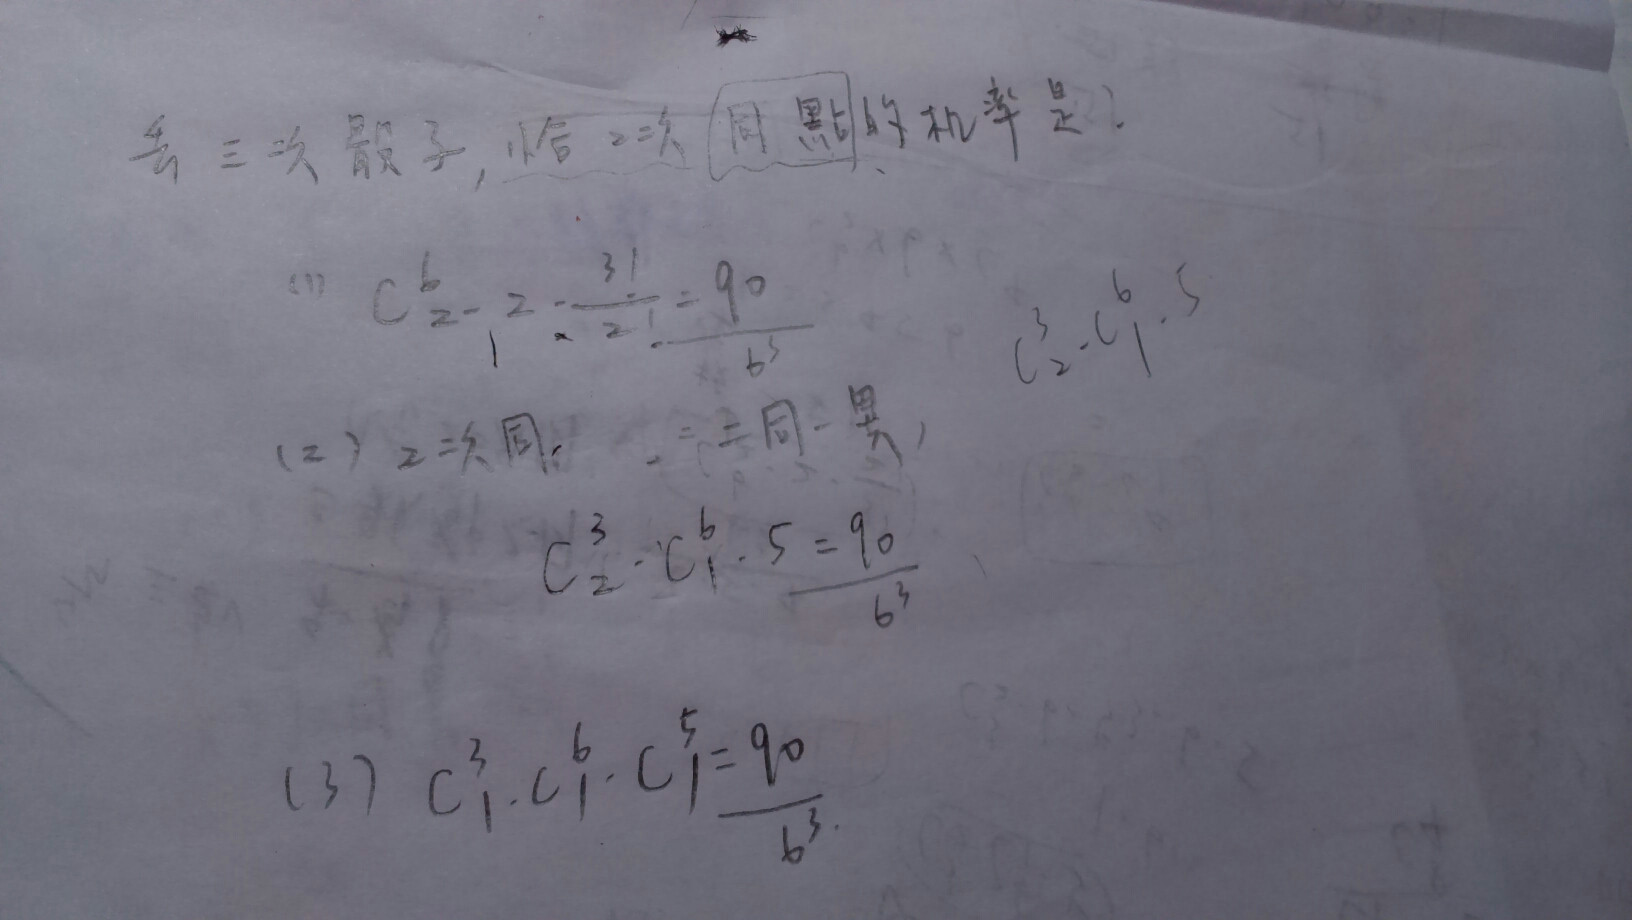 丢三次骰子,恰2次同點的机率是?
(1) C⁶₂·2·3!/2! = 90/6³
1
C³₂·C⁶₁·5
(2) 2次同, = 二同一異,
C³₂·C⁶₁·5 = 90/6³
(3) C³₁·C⁶₁·C⁵₁ = 90/6³.